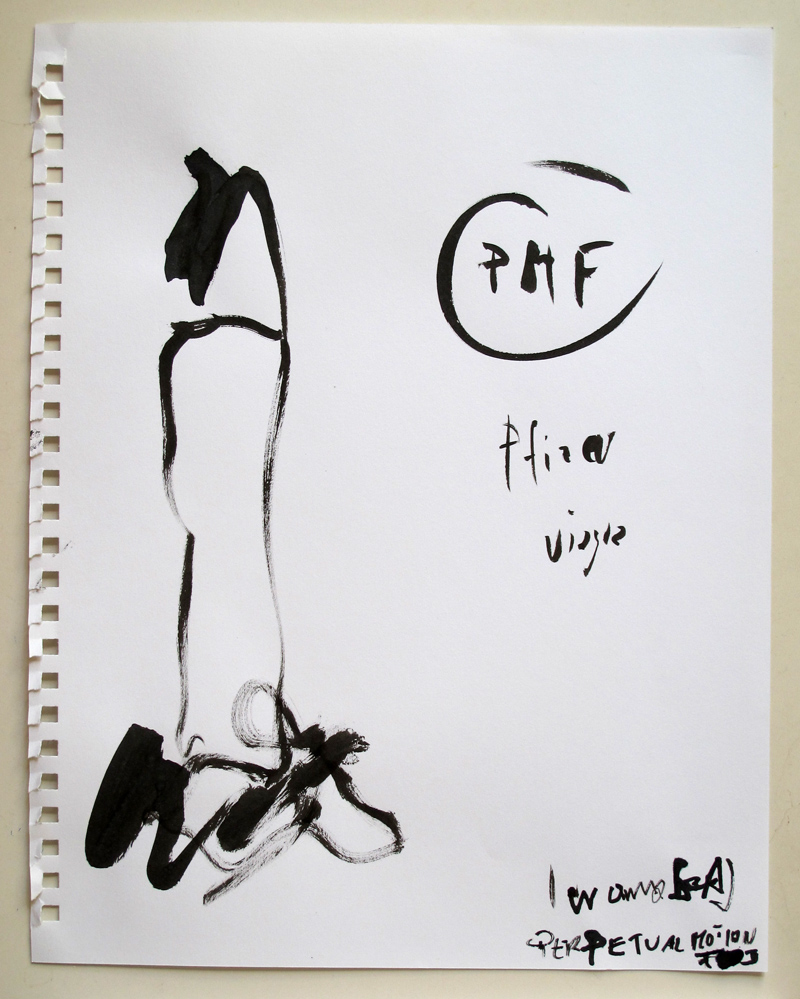 PMF
Pfizer
Viagra
I wanna
PERPETUAL MOTION